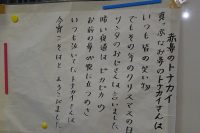 赤鼻のトナカイ
真っ赤なお鼻のトナカイさんは
いつも皆の笑い物
でもその年のクリスマスの日
サンタのおじさんは言いました
暗い夜道はピカピカの
お前の鼻が役に立つのさ
いつも泣いてたトナカイさんは
今宵こそはとよろこびました